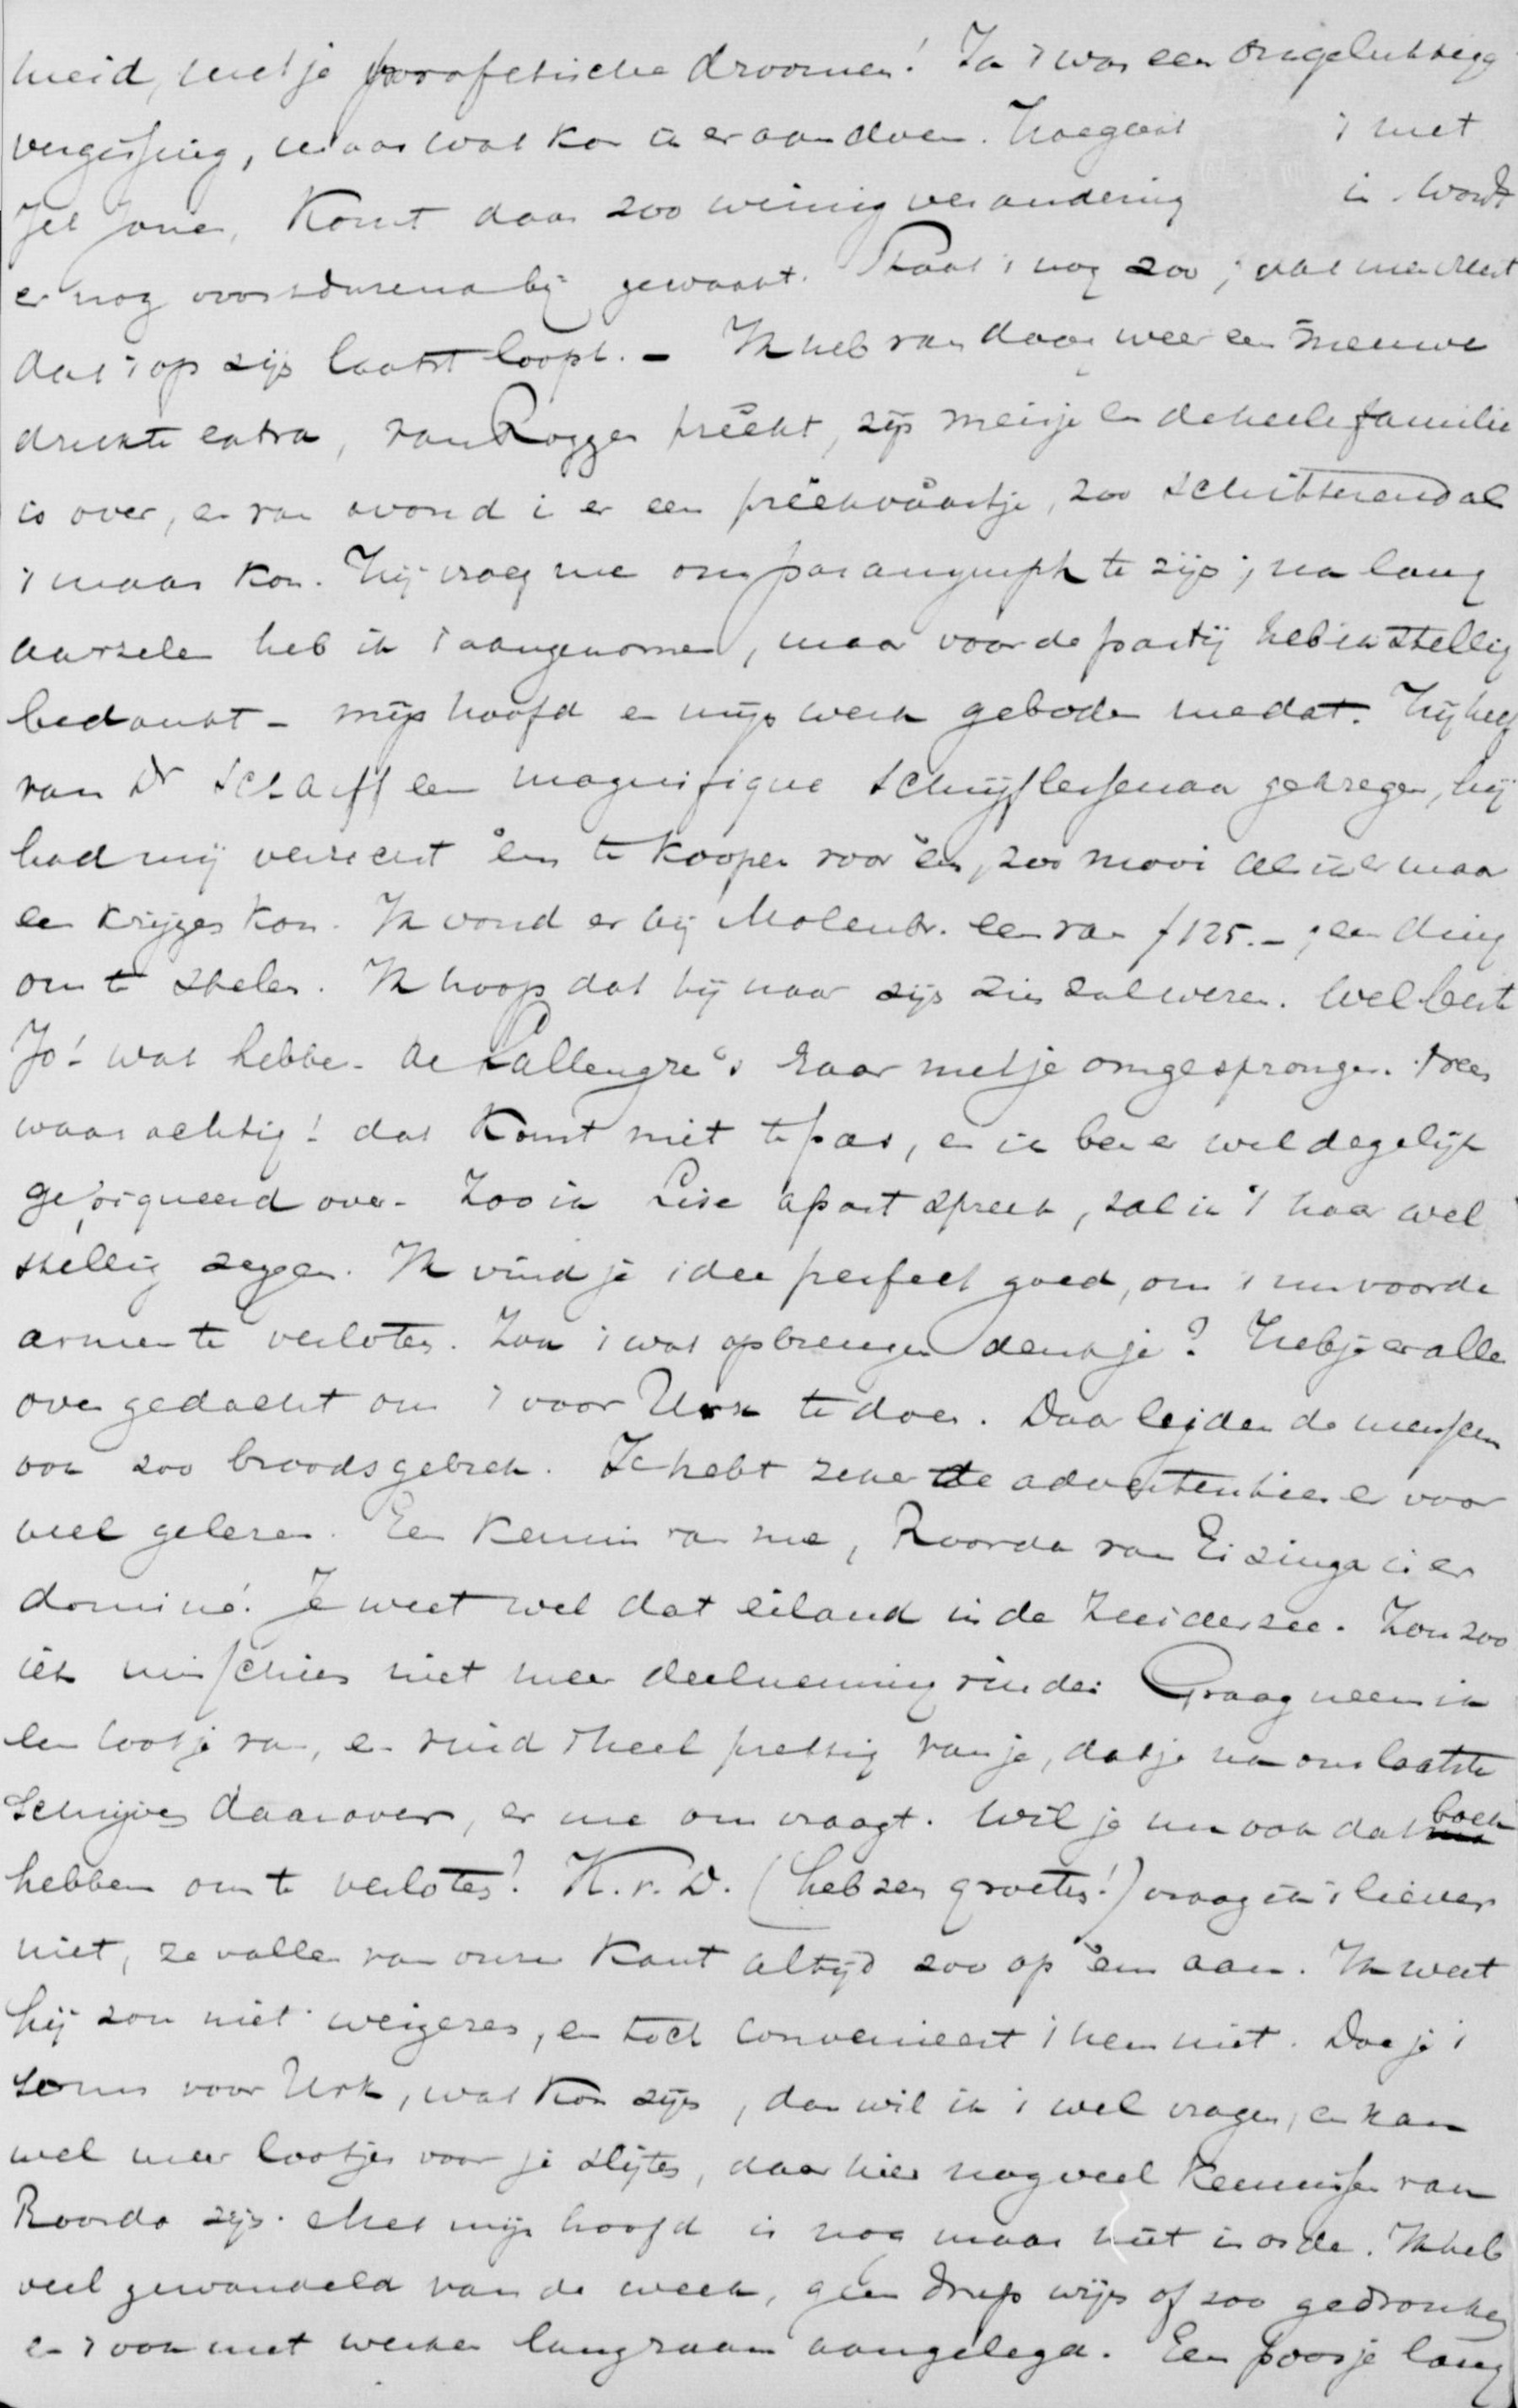 meid, met je profetische droomen! Ja 't was een ongelukkige
vergissing, maar wat kon ik er aan doen. Hoe gaat 't met
Jet Jonier, Komt daar zoo weinig verandering in. Wordt
er nog voortdurend bij gewaakt. Staat 't nog zoo, dat men vreest
dat 't op zijn laatst loopt. – Ik heb van daag weer een nieuwe
drukte extra, van Rogger prêekt, zijn meisje en de heele familie
is over, en van avond is er een prêekpartijtje, zoo schitterend als
't maar kon. Hij vroeg me om paranymph te zijn; na lang
aarzelen heb ik 't aangenomen, maar voor de partij heb ik stellig
bedankt – mijn hoofd en mijn werk geboden me dat. Hij heeft
van Dr Scharff een magnifique schrijflessenaar gekregen, hij
had mij verzocht 'em te koopen voor 'em, zoo mooi als ik er maar
een krijgen kon. Ik vond er bij Molenbr. een van f 125.–, een ding
om te stelen. Ik hoop dat hij naar zijn zin zal wezen. Wel beste
Jo! wat hebben de Sallengre's raar met je omgesprongen. Nee
waarachtig! dat komt niet te pas, en ik ben er wel degelijk
gepiqueerd over – Zoo ik Lise apart spreek, zal ik 't haar wel
stellig zeggen. Ik vind je idee perfect goed, om 't nu voor de
armen te verloten. Zou 't wat opbrengen denk je? Heb je er al
over gedacht om 't voor Urk te doen. Daar lijden de menschen
ook zoo broodsgebrek. Je hebt zeker de advertentien er voor
veel gelezen. Een kennis van me, Roorda van Eisinga is er
dominé. Je weet wel dat eiland in de Zuiderzee. Zou zoo
iets misschien niet meer deelneming vinden. Graag neem ik
een lootje van, en vind 't heel prettig van je, dat je na ons laatste
schrijven daarover, er me om vraagt. Wil je nu ook dat boek
hebben om te verloten? K.v.D. (heb zen groeten!) vraag ik 't liever
niet, ze vallen van onzen kant altijd zoo op 'em aan. Ik weet
hij zou niet weigeren, en toch convenieert 't hem niet. Doe je 't
soms voor Urk, wat kon zijn, dan wil ik 't wel vragen, en kan
wel meer lootjes voor je slijten, daar hier nog veel kennissen van
Roorda zijn. Met mijn hoofd is nog maar niet in orde. Ik heb
veel gewandeld van de week, geen drup wijn of zoo gedronken
en 't ook met werken langzaam aangelegd. Een poosje lang